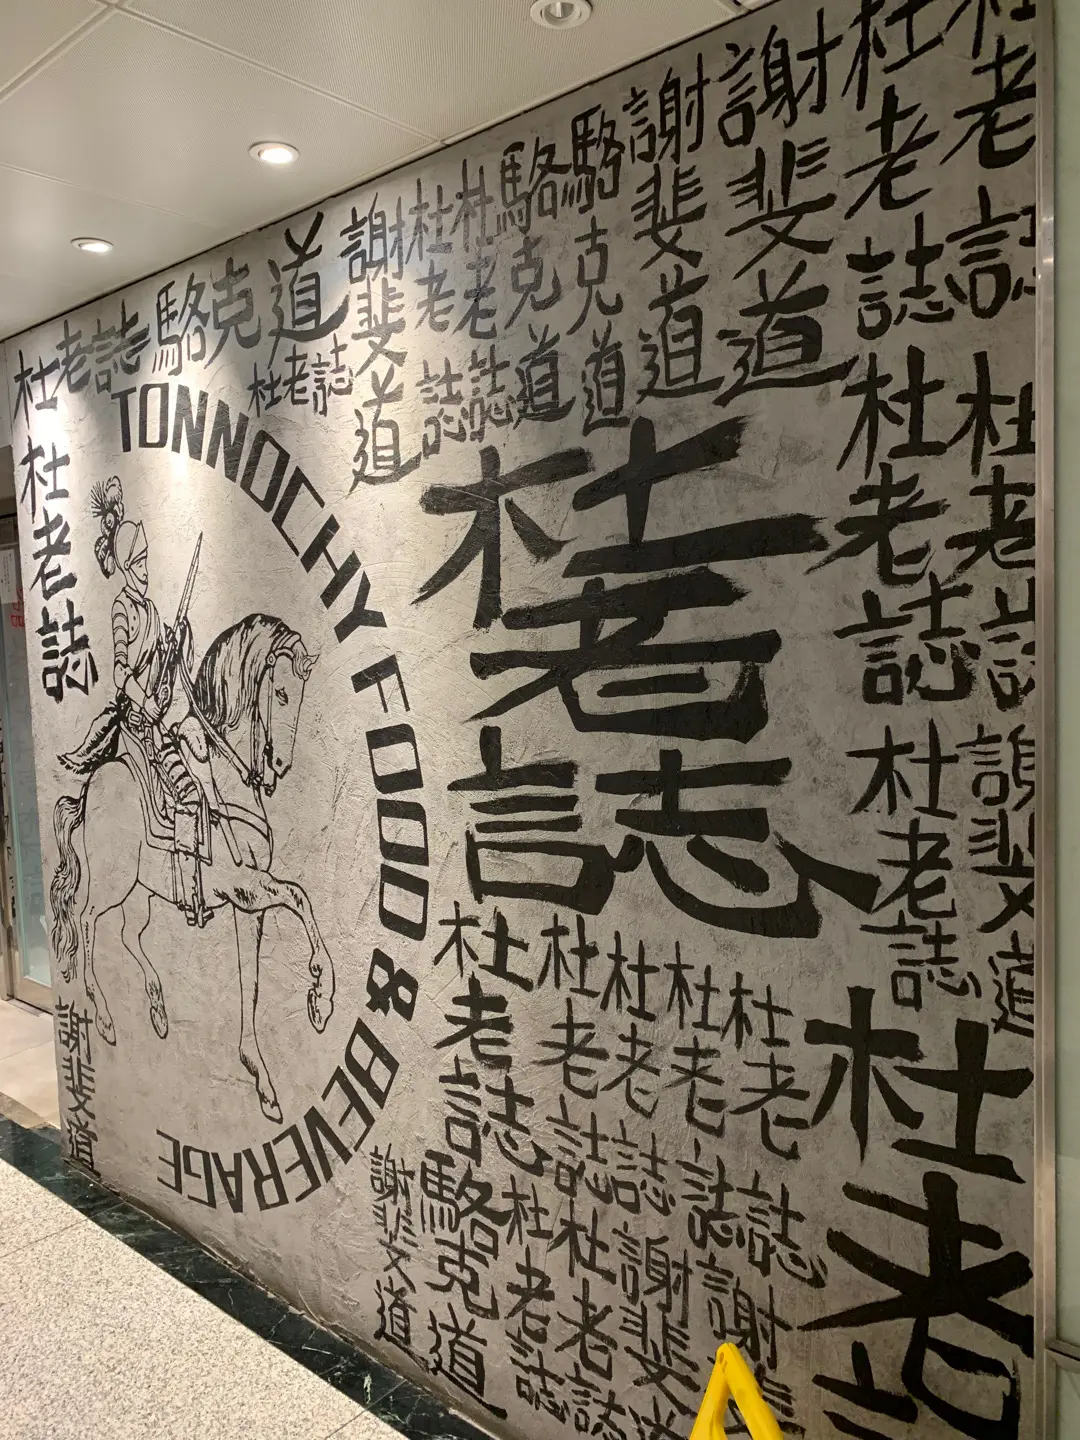 杜老誌
駱克道
杜老誌
謝斐道
杜老誌
杜老誌
駱克道
駱克道
謝斐道
謝斐道
杜老誌
杜老誌
TONNOCHY FOOD & BEVERAGE
杜老誌
杜老誌
杜老誌
杜老誌
杜老誌
謝斐道
謝斐道
杜老誌
杜老誌
杜老誌
杜老誌
杜老誌
謝斐道
駱克道
杜老誌
杜老誌
謝斐道
謝斐
杜老